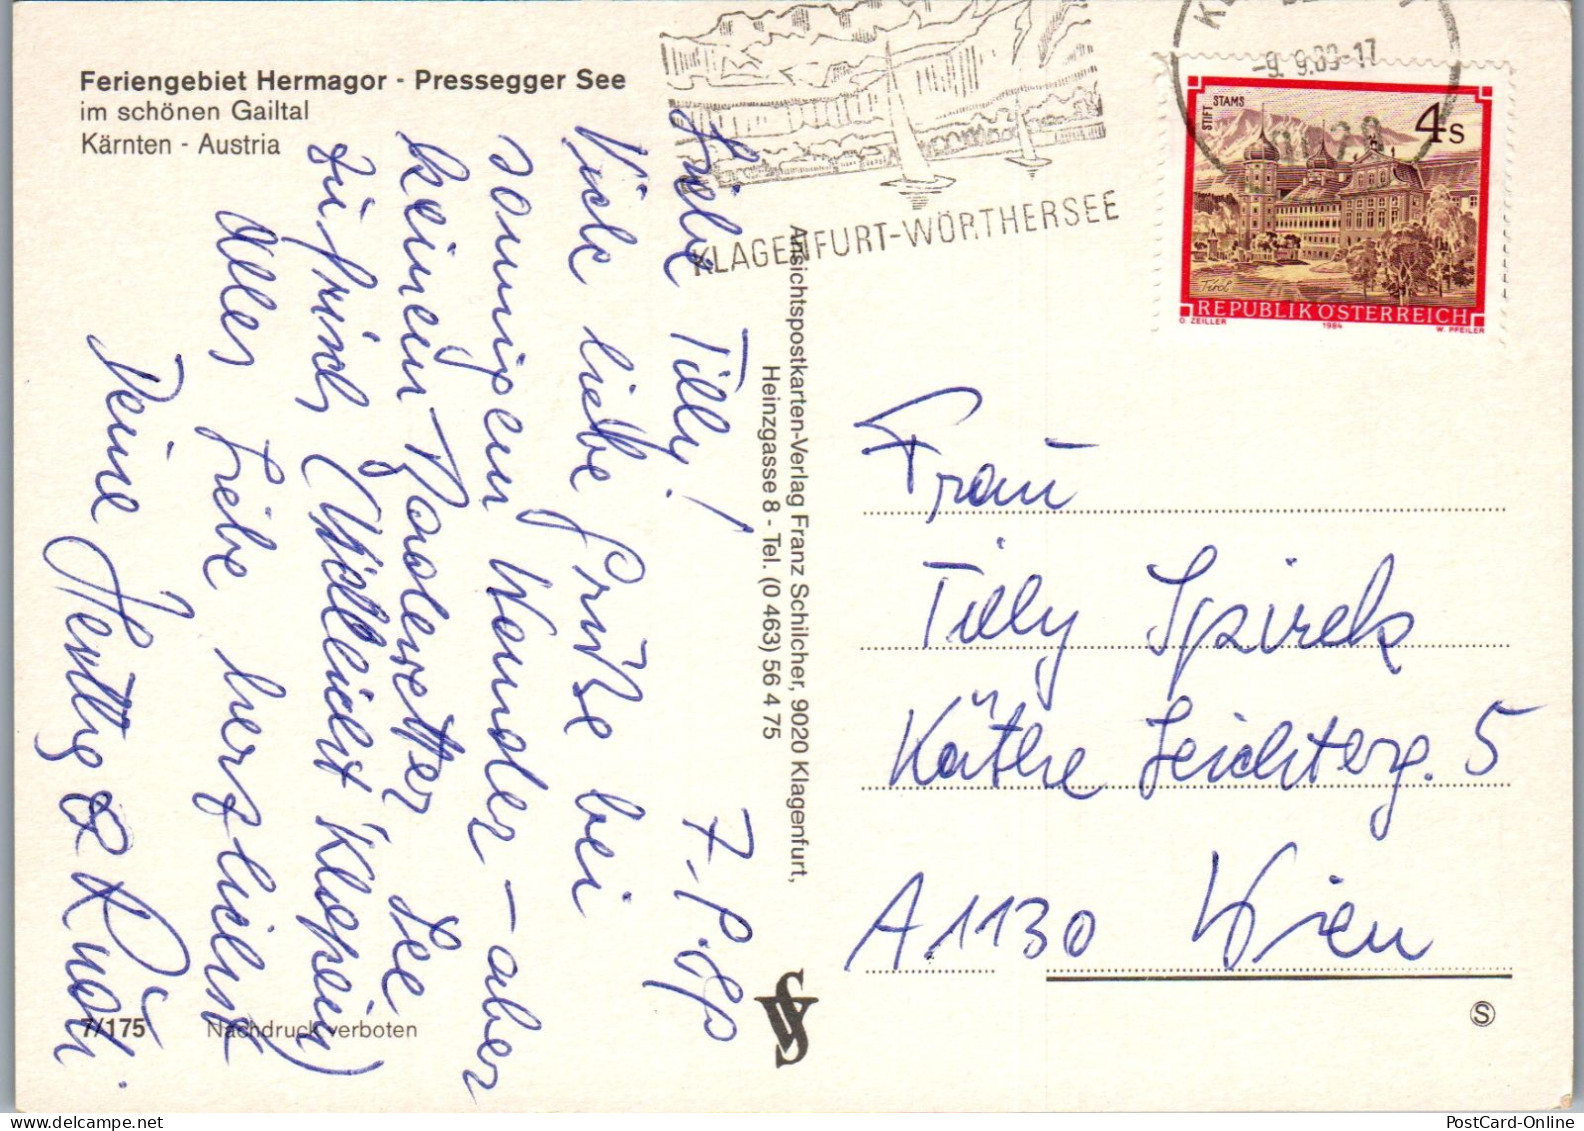 Feriengebiet Hermagor - Pressegger See
im schönen Gailtal
Kärnten - Austria
KLAGENFURT-WÖRTHERSEE
-9. 9.89-17
STIFT STAMS
4 S
Tirol
REPUBLIK ÖSTERREICH
O. ZEILLER 1984 W. PFEILER
Liebe Tilly! 7.9.89
Viele liebe Grüße bei
sonnigem Wander - aber
keinem Badewetter
See
(Vielleicht Klopein)
Alles Liebe herzlichst
Deine Hertlig & Rudi.
Ansichtspostkarten-Verlag Franz Schilcher, 9020 Klagenfurt,
Heinzgasse 8 - Tel. (0 463) 56 4 75
Frau
Tilly Spirek
Käthe Leichterg. 5
A 1130 Wien
7/175 Nachdruck verboten
SV
S
PostCard-Online